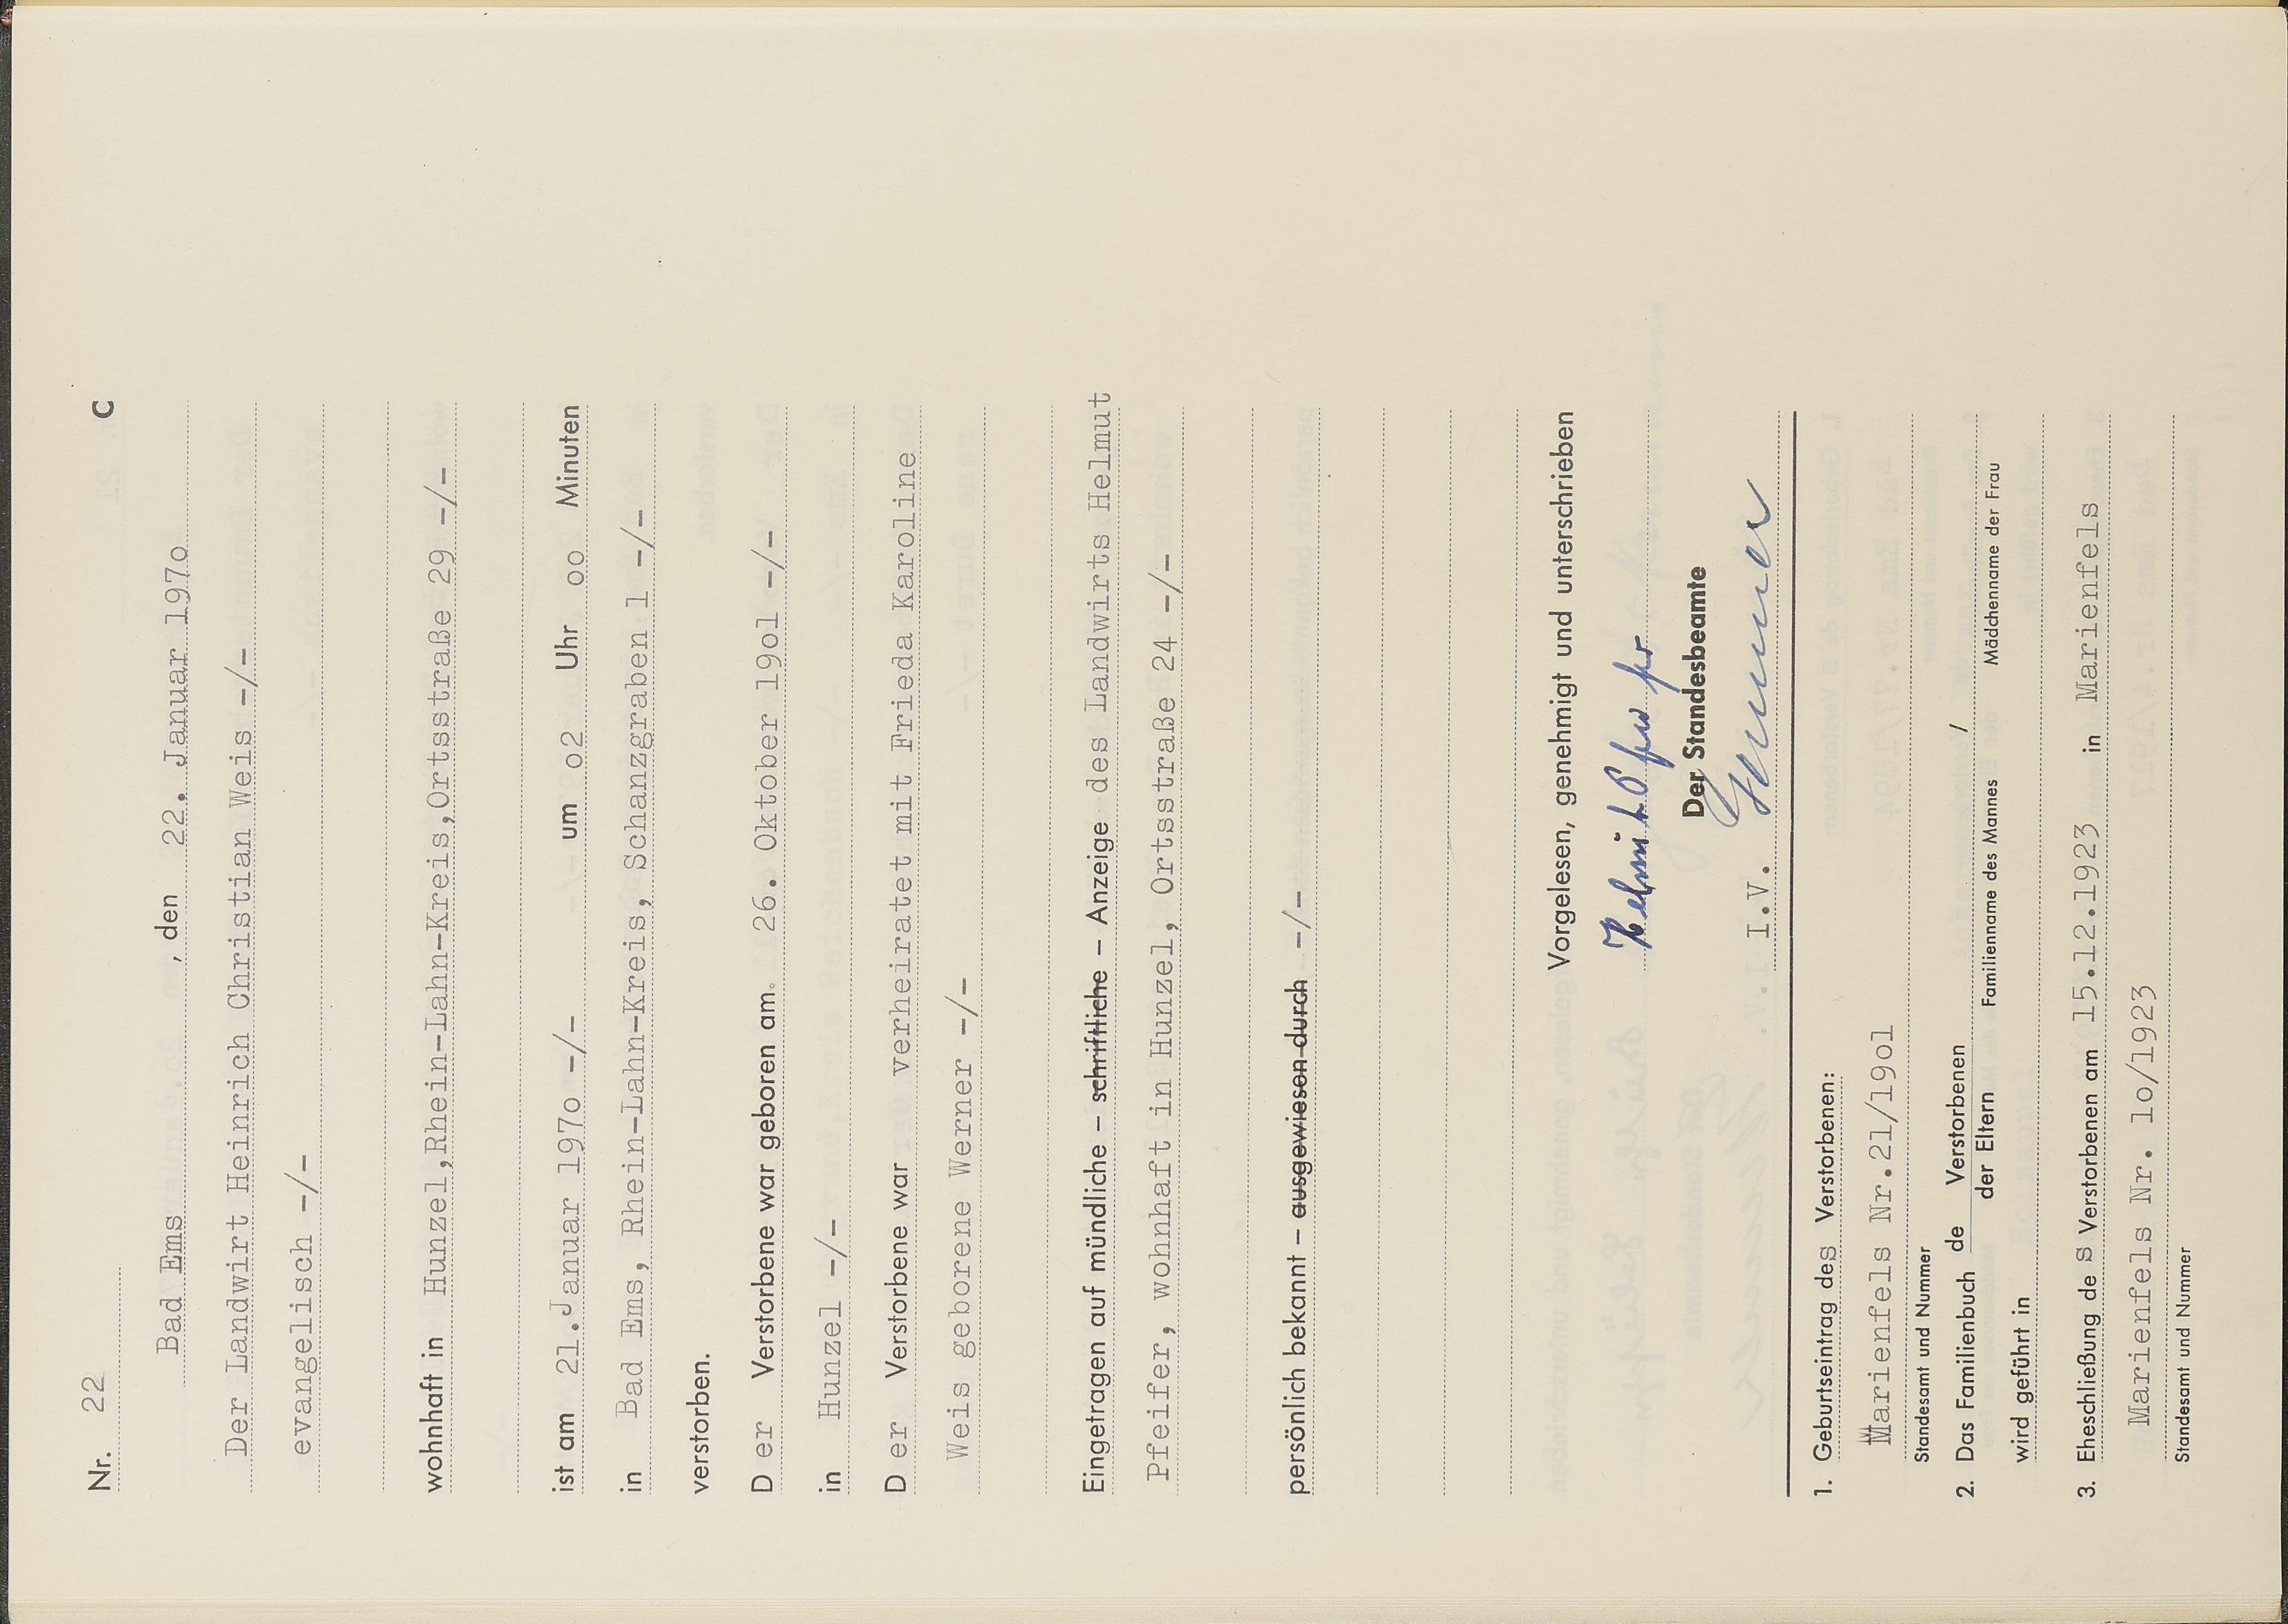 Nr. 22 C
Bad Ems , den 22. Januar 197o
Der Landwirt Heinrich Christian Weis -/-
evangelisch -/-
wohnhaft in Hunzel,Rhein-Lahn-Kreis,Ortsstraße 29 -/-
ist am 21.Januar 197o -/- um o2 Uhr oo Minuten
in Bad Ems, Rhein-Lahn-Kreis, Schanzgraben 1 -/-
verstorben.
D er Verstorbene war geboren am 26. Oktober 19o1 -/-
in Hunzel -/-
D er Verstorbene war verheiratet mit Frieda Karoline
Weis geborene Werner -/-
Eingetragen auf mündliche – schriftliche – Anzeige des Landwirts Helmut
Pfeifer, wohnhaft in Hunzel, Ortsstraße 24 -/-
persönlich bekannt – ausgewiesen durch -/-
Vorgelesen, genehmigt und unterschrieben
Helmut
Der Standesbeamte
I.V.
1. Geburtseintrag des Verstorbenen:
Marienfels Nr.21/19o1
Standesamt und Nummer
2. Das Familienbuch de Verstorbenen /
der Eltern Familienname des Mannes Mädchenname der Frau
wird geführt in
3. Eheschließung de s Verstorbenen am 15.12.1923 in Marienfels
Marienfels Nr. 1o/1923
Standesamt und Nummer